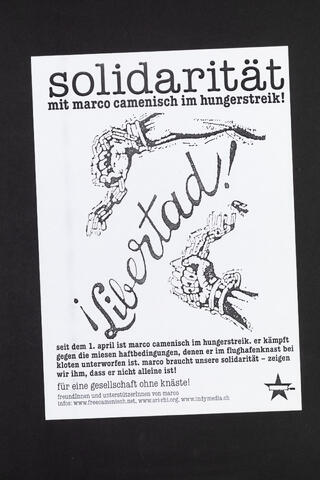 solidarität
mit marco camenisch im hungerstreik!
¡Libertad!
seit dem 1. april ist marco camenisch im hungerstreik. er kämpft
gegen die miesen haftbedingungen, denen er im flughafenknast bei
kloten unterworfen ist. marco braucht unsere solidarität – zeigen
wir ihm, dass er nicht alleine ist!
für eine gesellschaft ohne knäste!
freundInnen und unterstützerInnen von marco
infos: www.freecamenisch.net, www.sri-rhi.org, www.indymedia.ch